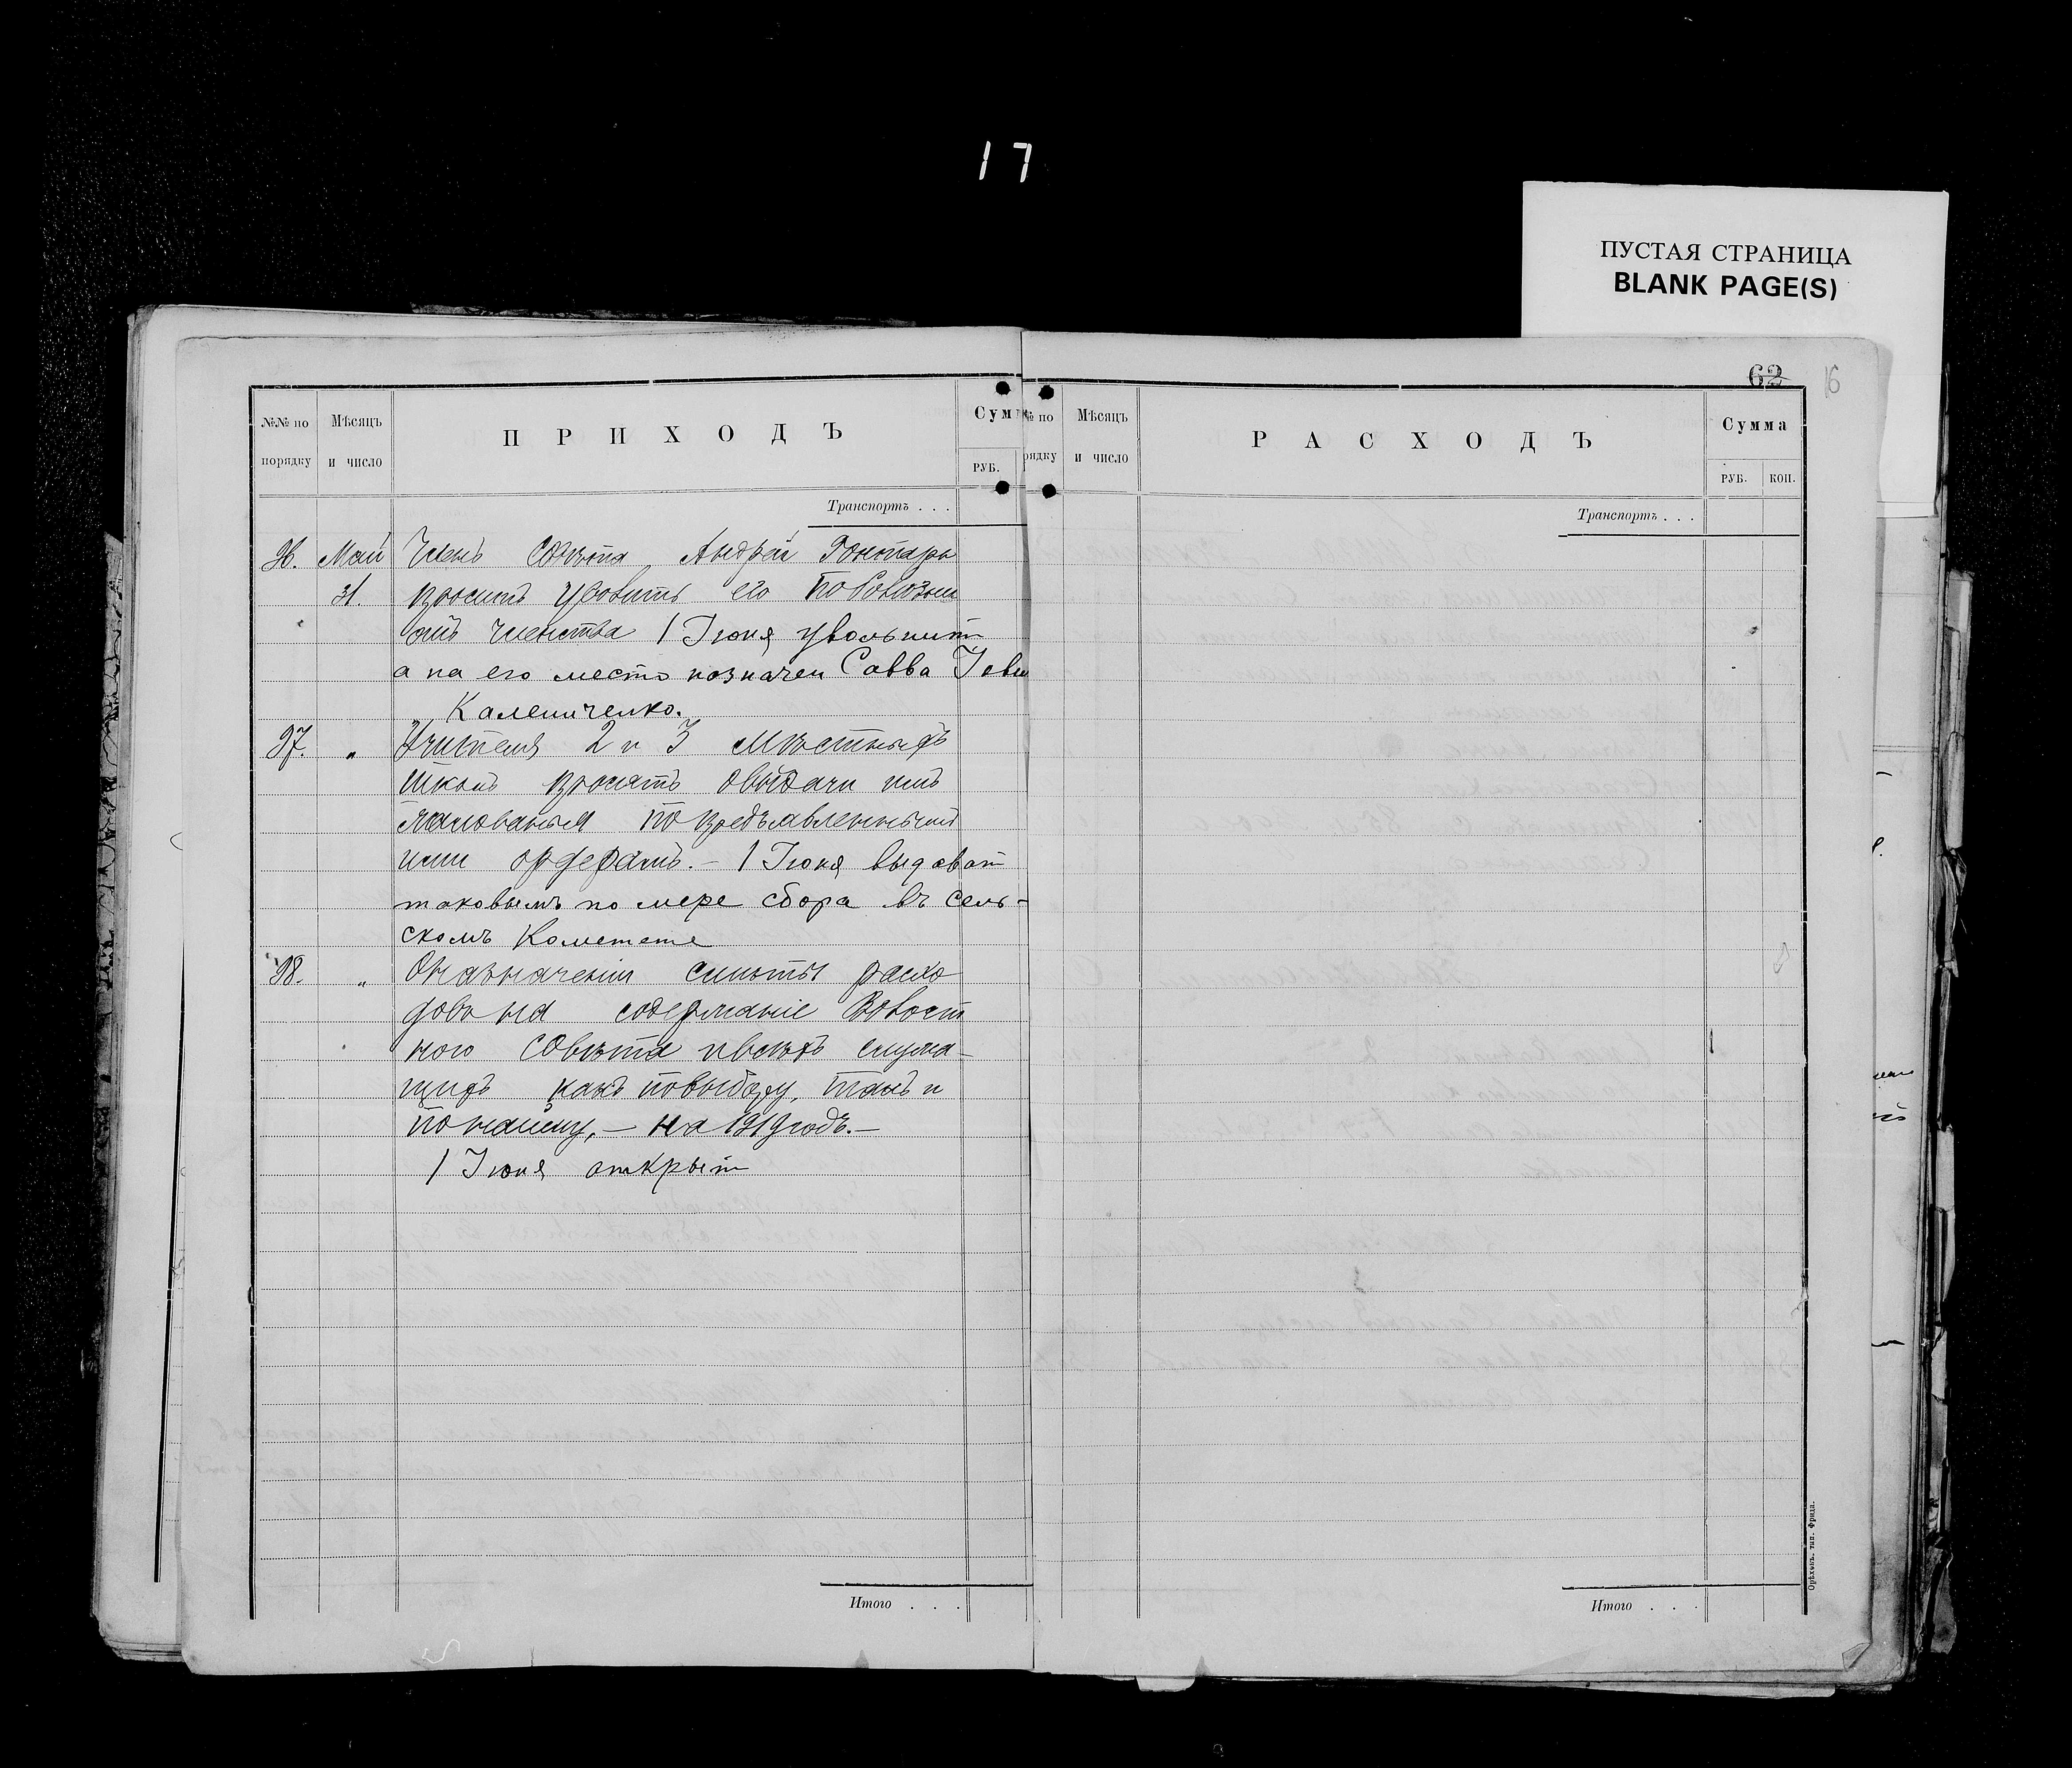 17
ПУСТАЯ СТРАНИЦА
BLANK PAGE(S)
62
16
№№ по порядку
Мѣсяцъ и число
ПРИХОДЪ
Сум
РУБ.
Транспортъ . . .
96. Май Членъ Совѣта Андрей Гонтарь
31. проситъ уволить его по болѣзни
отъ членства 1 Июня увольнит
а на его место назначен Савва
Калениченко.
97. „ Учителя 2 и 3 Мѣстныхъ
школъ просятъ овыдачи имъ
жалованья по предъявленнымъ
ими ордерамъ. – 1 Июня выдават
таковымъ по мере сбора въ сель-
скомъ Кометете
98. „ Оназначении смѣты расхо
довъ на содержаніе Волост
ного Совѣта ивсѣхъ служа-
щихъ какъ повыбору, такъ и
по найму, – на 1919 годъ. –
1 Июня открыт
Итого . . .
№ по рядку
Мѣсяцъ и число
РАСХОДЪ
Сумма
РУБ. КОП.
Транспортъ . . .
Итого . . .
Орѣховъ. тип. Фрида.